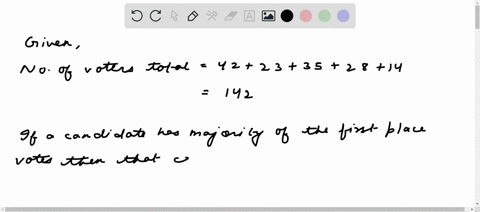 Given,
No. of voters total = 42 + 23 + 35 + 28 + 14
= 142
If a candidate has majority of the first place
votes then that c